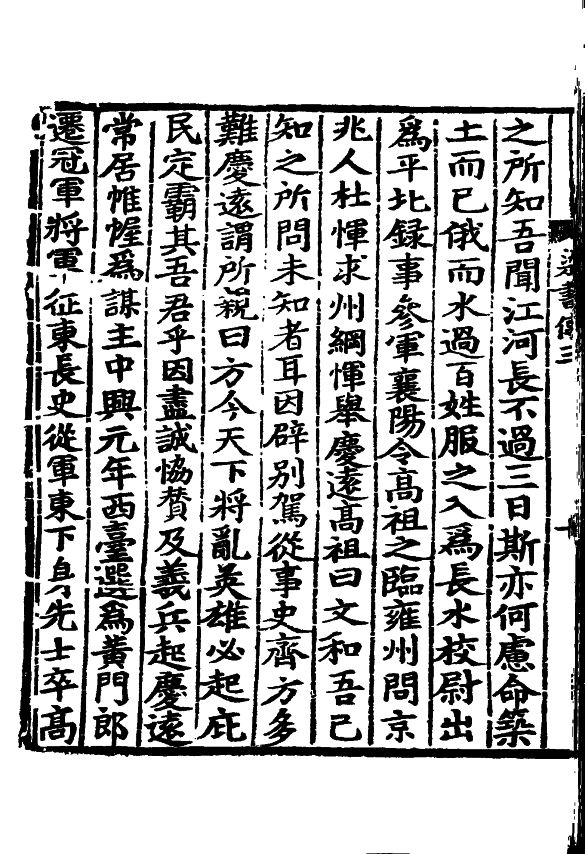 之所知吾聞江河長不過三日斯亦何慮命築
土而已俄而水過百姓服之入爲長水校尉出
爲平北錄事參軍襄陽令高祖之臨雍州問京
兆人杜惲求州綱惲舉慶遠高祖曰文和吾已
知之所問未知者耳因辟別駕從事史齊方多
難慶遠謂所親曰方今天下將亂英雄必起庇
民定霸其吾君乎因盡誠恊賛及義兵起慶遠
常居帷幄爲謀主中興元年西臺選爲黃門郎
遷冠軍將軍征東長史從軍東下身先士卒高